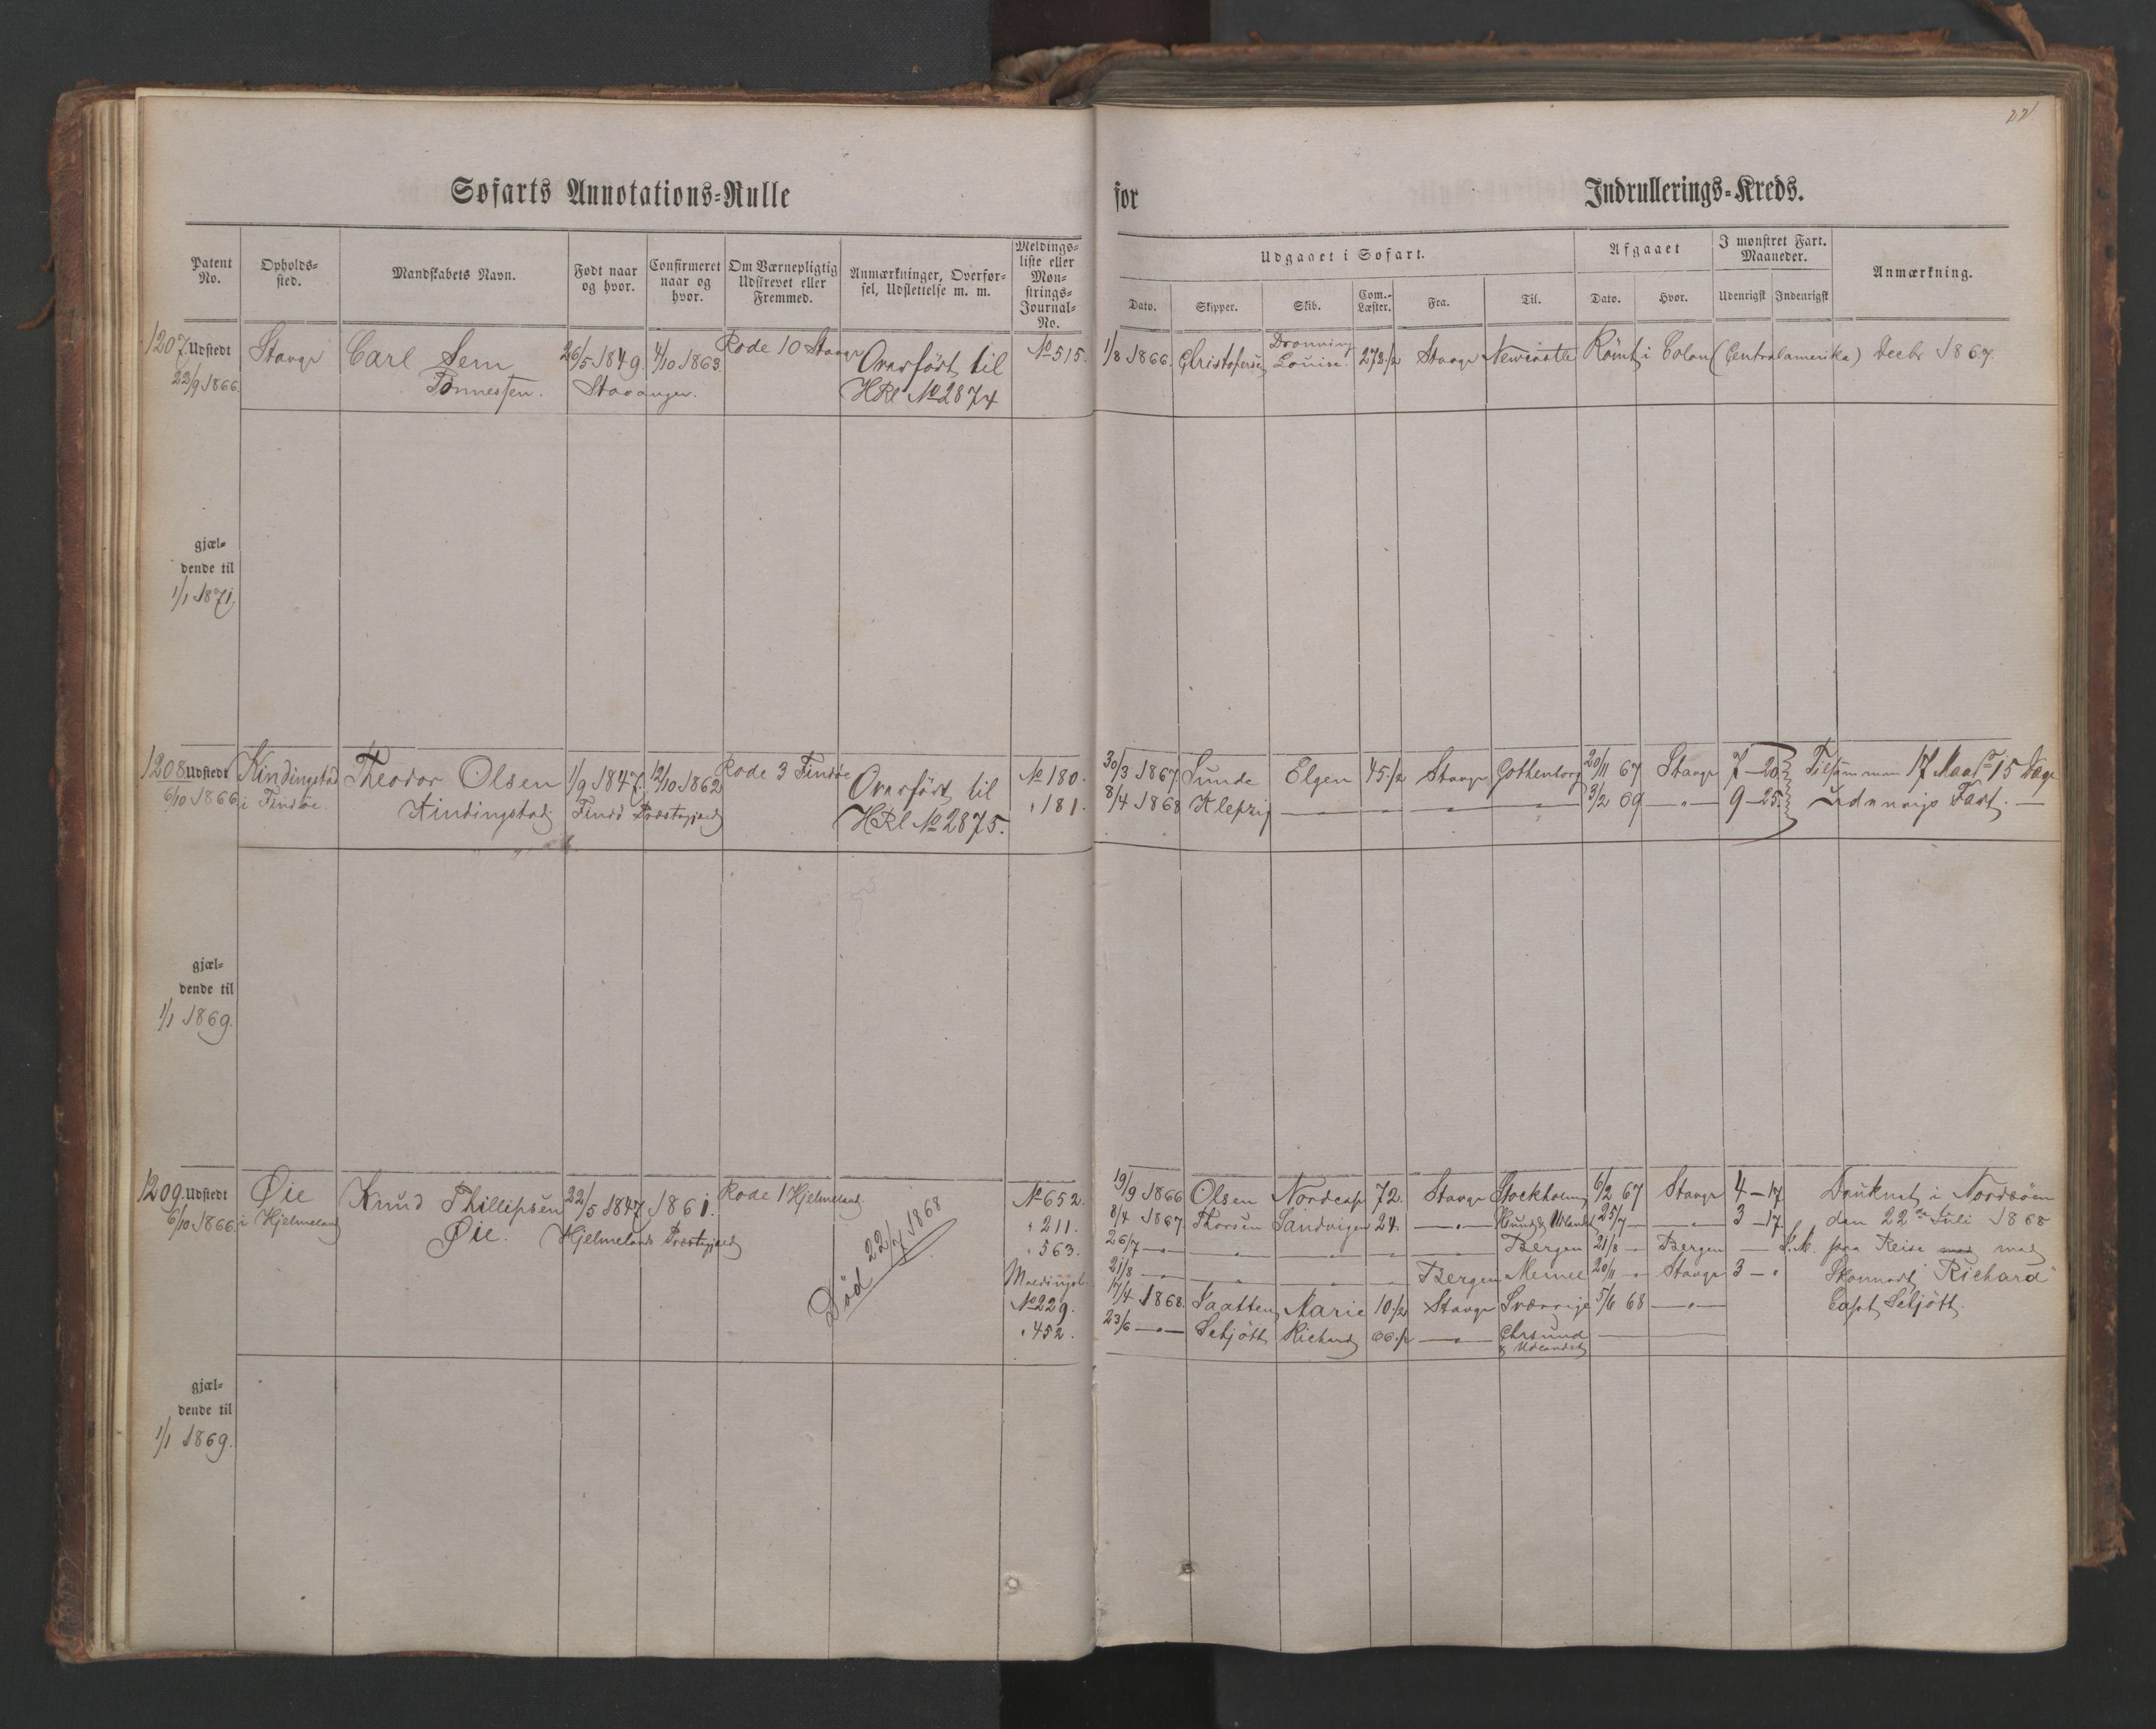 22
Søfarts Annotations-Rulle for Indrullerings-Kreds.
Patent No. Opholds-sted. Mandskabets Navn. Født naar og hvor. Confirmeret naar og hvor. Om Værnepligtig Udskrevet eller Fremmed. Anmærkninger, Overfør-sel, Udslettelse m. m. Meldings-liste eller Mon-strings-Journal-No.
Udgaaet i Søfart. Afgaaet I mønstret Fart. Maaneder. Anmærkning.
Dato. Skipper. Skib. Com.-Læster. Fra. Til. Dato. Hvor. Udenrigsk Indenrigsk
1207. Udstedt Stavgr Carl Sem 26/5 1849. 4/10 1863. Rode 10 Stavgr Overført til No 515. 1/8 1866. Christofersen Dronning Louise. 273 1/2 Stavgr Newcastle Rømt i Colon (Centralamerika) Decbr 1867.
22/9 1866. Tønnessen. Stavanger. HRl No 2874
gjæl-
dende til
1/1 1871.
1208 Udstedt Kindingstad Theodor Olsen 1/9 1847. 12/10 1862 Rode 3 Findøe Overført til No 180. 30/3 1867 Sunde Elgen 45 1/2 Stavgr Gothenborg 20/11 67 Stavgr 7-20 Tilsammen 17 Maar 15 Dage
6/10 1866. i Findøe. Kindingstad Findø Præstegjæld HRl No 2875. " 181. 8/4 1868 Klepzig — " — " — " — 3/2 69 — " — 9-25 Udenrigs Fart. —
gjæl-
dende til
1/1 1869.
1209. Udstedt Øie Knud Phillipsen 22/5 1847 1861. Rode 1 Hjelmeland. No 652. 19/9 1866 Olsen Nordcap 72. Stavgr Stockholm 6/2 67 Stavgr 4-17 Druknet i Nordsøen
6/10 1866. i Hjelmeland Øie. Hjelmelands Præstegjæld Død 22/7 1868 " 211. 8/4 1867 Thorsen Sandvigen 24. — " — & Udlandet 25/7 — — " — 3-17 den 22de Juli 1868
" 563. 26/7 — " — " " — — Bergen 21/8 — Bergen — paa Reise med med
21/8 — " — Bergen Memel 20/11 — " Stavgr 3 — " Skonnert "Richard"
No 229. 17/4 1868. Saatten Marie 10 1/2 Stavgr Sverrige 5/6 68 — " — Capt Schjøtt.
" 452. 23/6 — " — Schjøtt Richard 66 1/2 — " — Chrsund & Udlandet
gjæl-
dende til
1/1 1869.